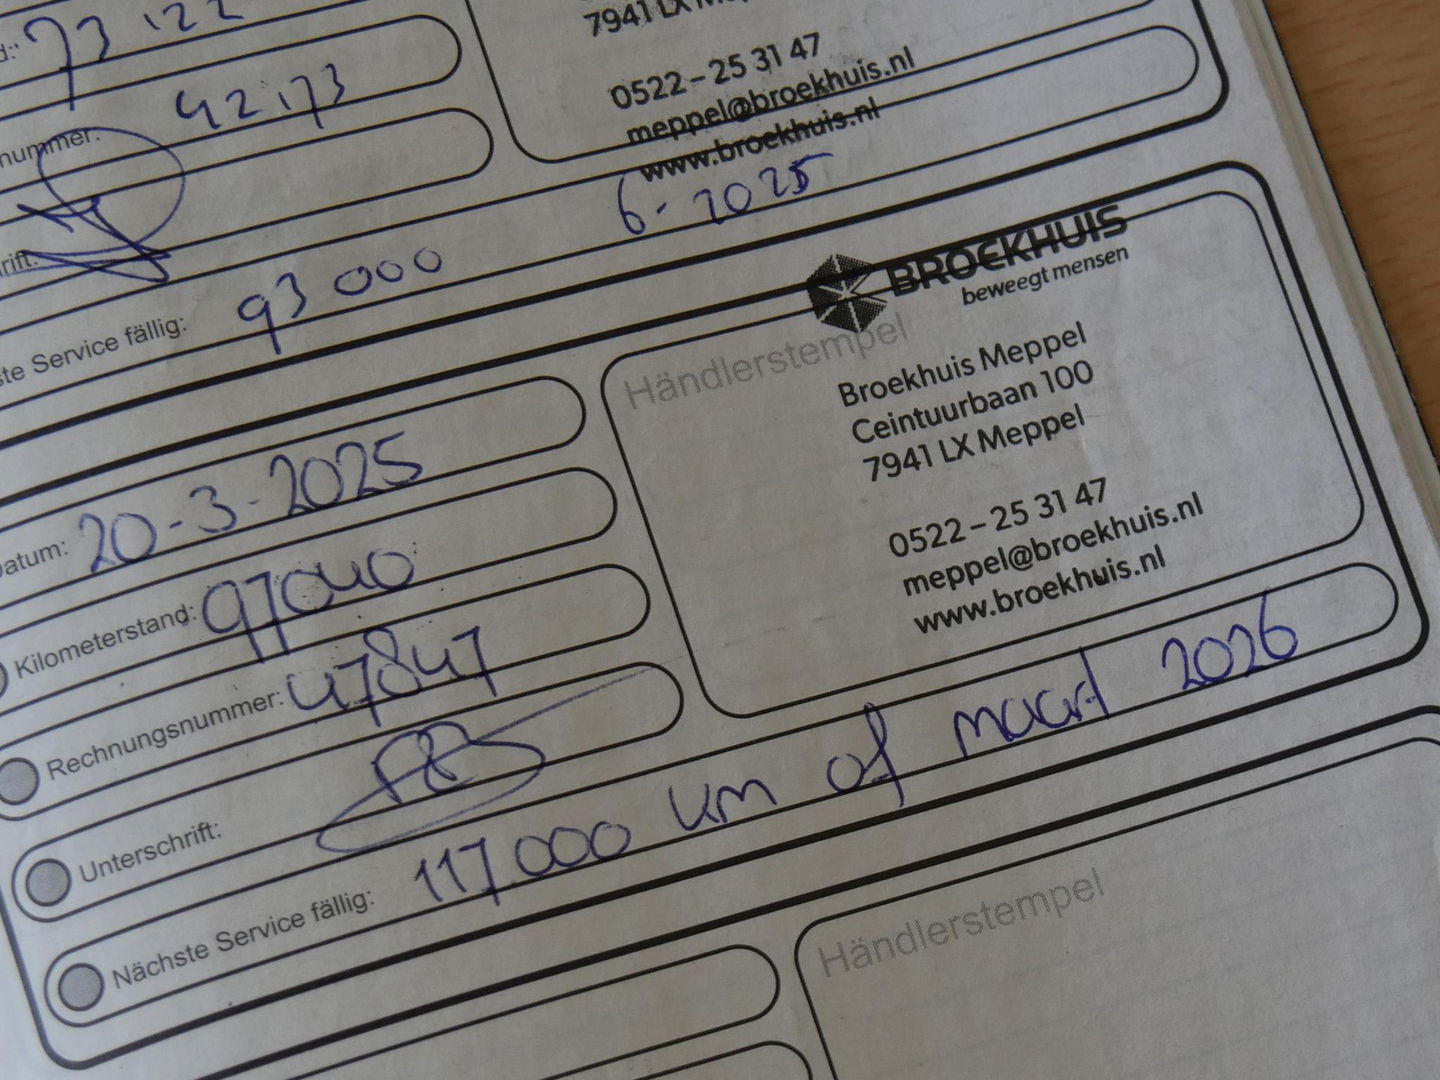 d: 73.122
7941 LX Meppel
0522 – 25 31 47
nummer: 42.173
meppel@broekhuis.nl
www.broekhuis.nl
rift:
ste Service fällig: 93 000 6-2025
BROEKHUIS
beweegt mensen
Händlerstempel
Broekhuis Meppel
Ceintuurbaan 100
7941 LX Meppel
0522 – 25 31 47
meppel@broekhuis.nl
www.broekhuis.nl
Datum: 20-3-2025
Kilometerstand: 97040
Rechnungsnummer: 47847
Unterschrift:
Nächste Service fällig: 117.000 km of maart 2026
Händlerstempel